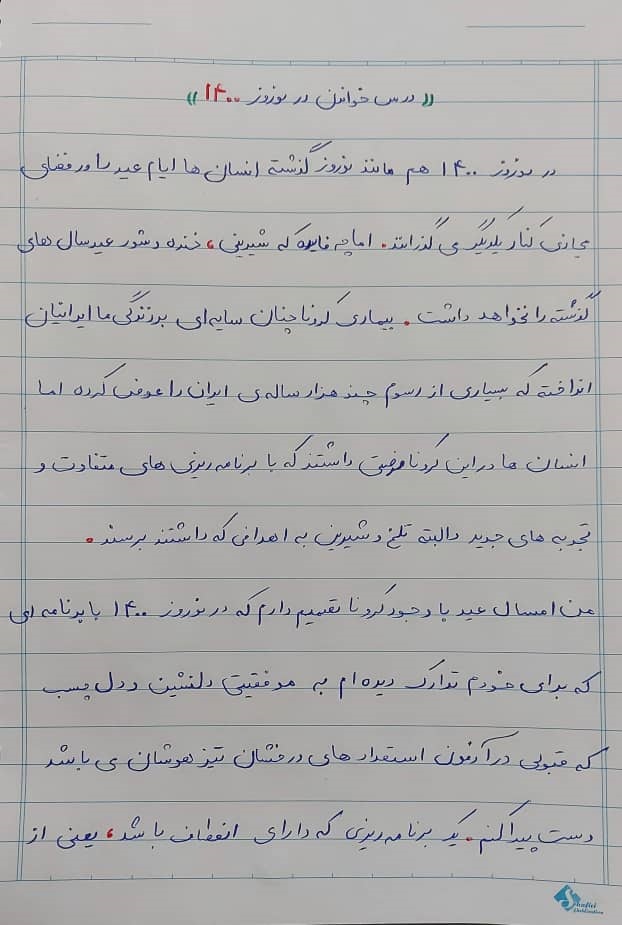 (( درس خواندن در نوروز ۱۴۰۰ ))
در نوروز ۱۴۰۰ هم مانند نوروز گذشته انسان ها ایام عید را در فضای
مجازی کنار یکدیگر می گذرانند. اما چه فایده که شیرینی، خنده و شور عید سال های
گذشته را نخواهد داشت. بیماری کرونا چنان سایه ای بر زندگی ما ایرانیان
انداخته که بسیاری از رسوم چند هزار ساله ی ایران را عوض کرده اما
انسان ها در این کرونا فرصتی داشتند که با برنامه ریزی های متفاوت و
تجربه های جدید والبته تلخ و شیرین به اهدافی که داشتند برسند.
من امسال عید با وجود کرونا تصمیم دارم که در نوروز ۱۴۰۰ با برنامه ای
که برای خودم تدارک دیده ام به موفقیتی دلنشین و دل چسب
که قبولی در آزمون استعداد های درخشان تیز هوشان می باشد
دست پیدا کنم. یک برنامه ریزی که دارای انعطاف باشد، یعنی از
Shafiei
Publication